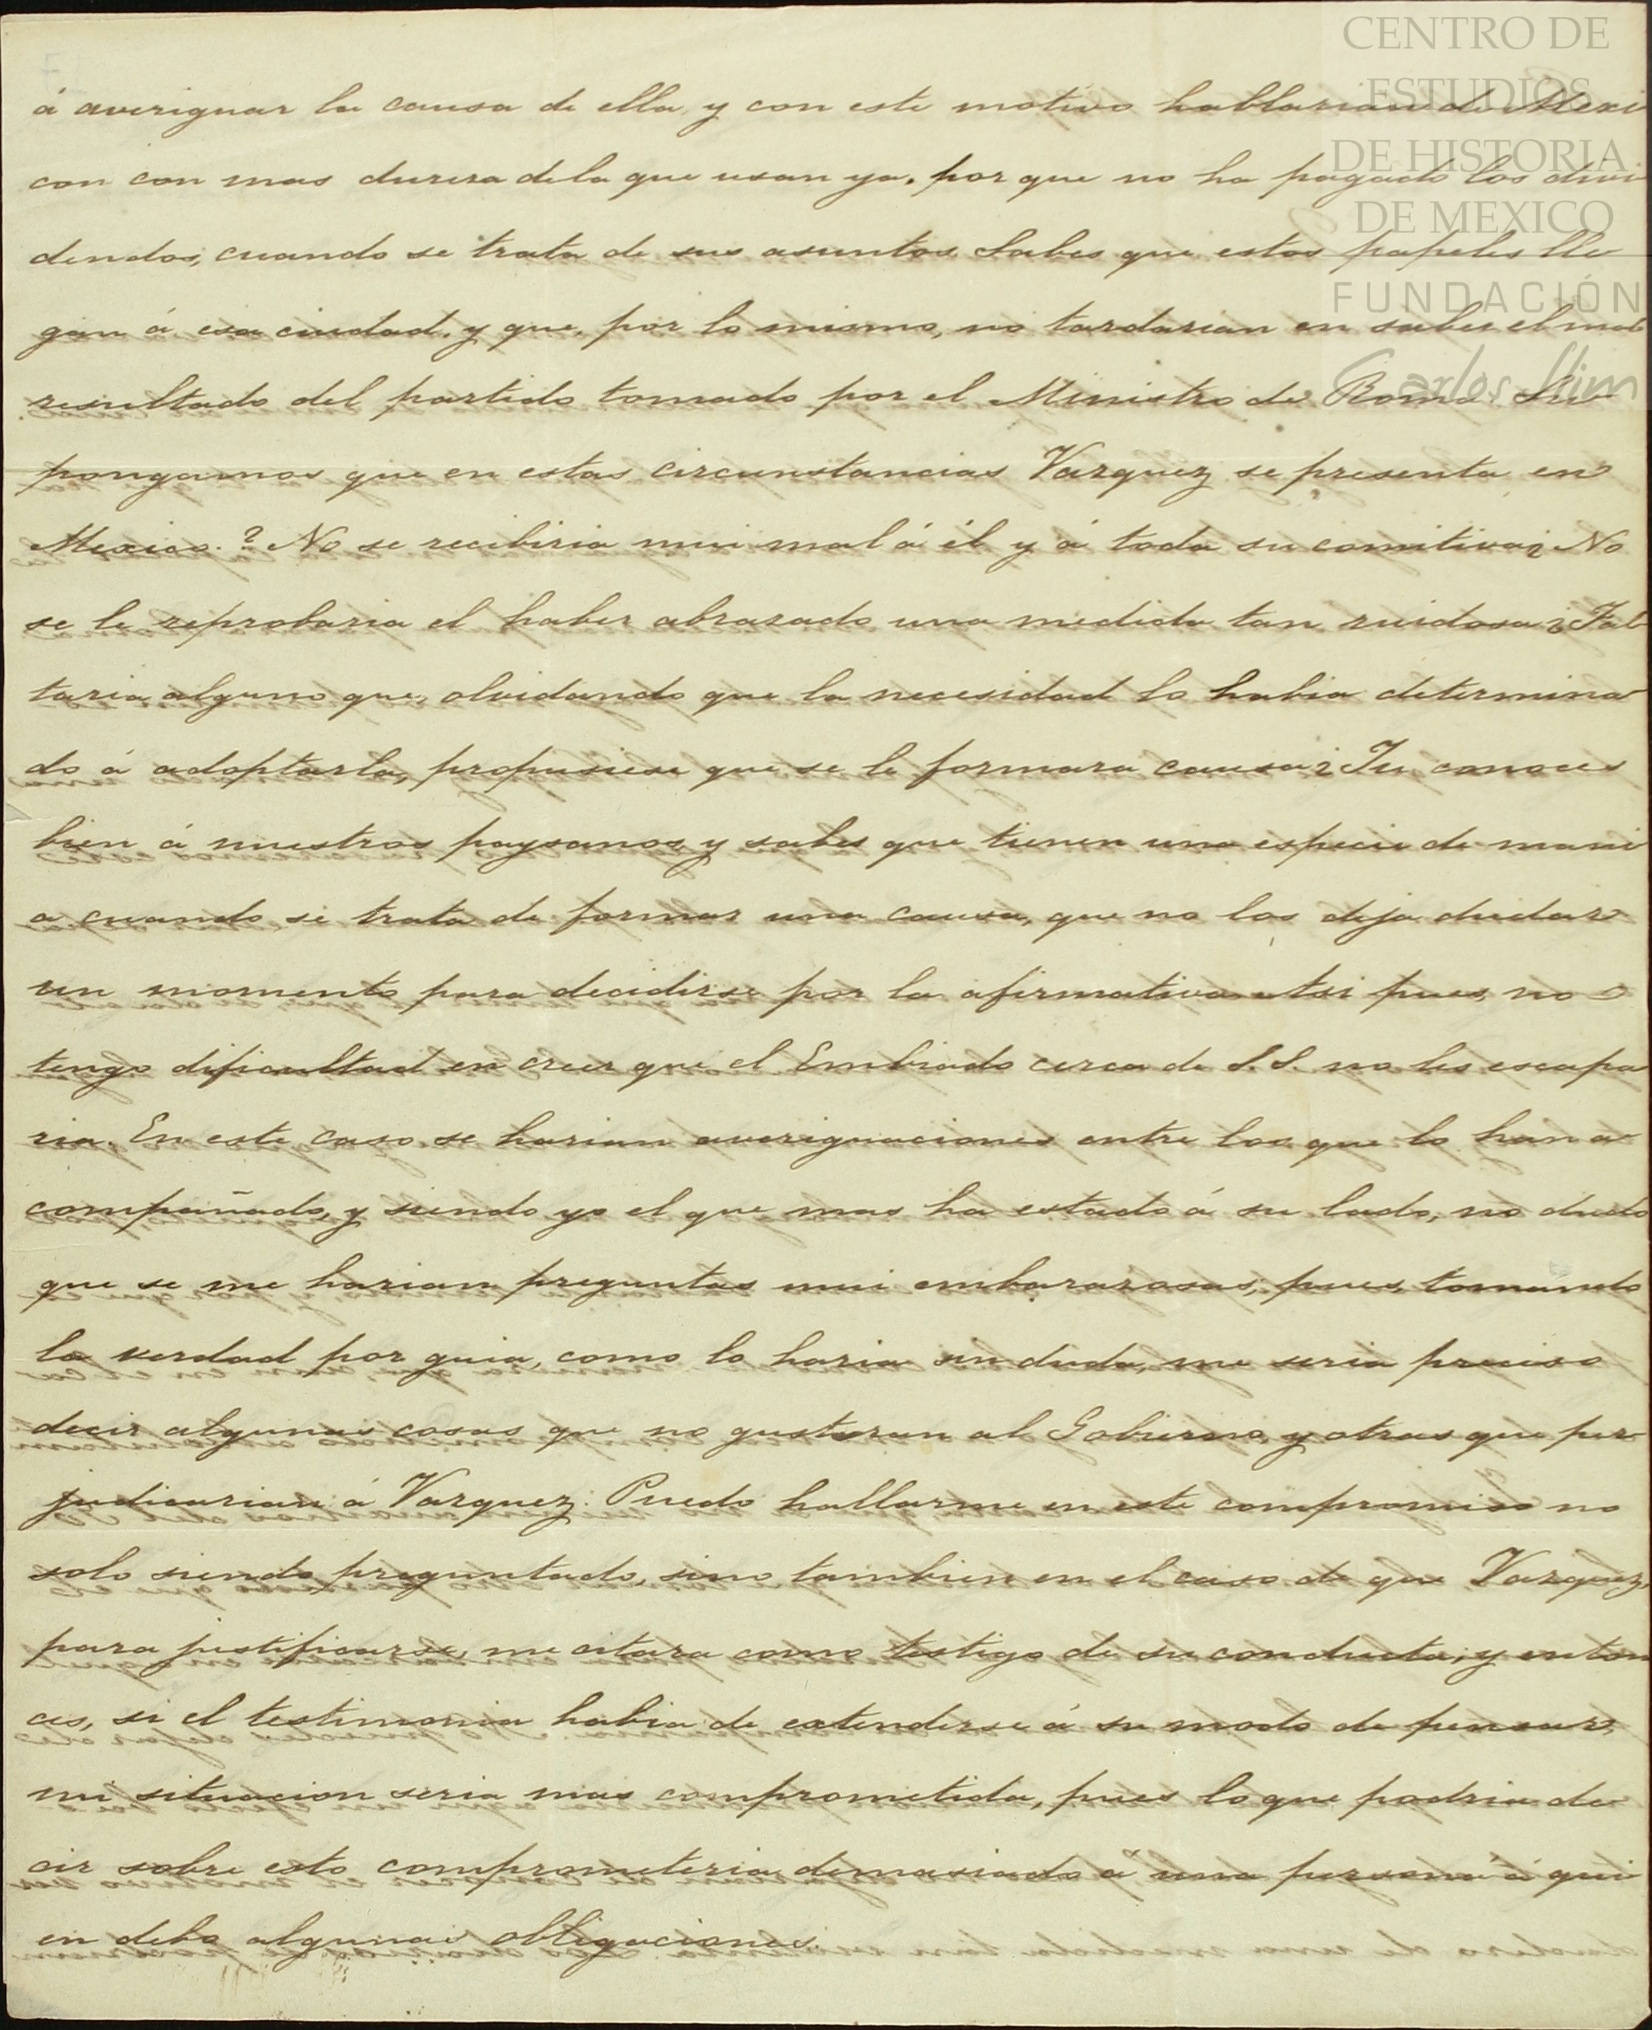 CENTRO DE
ESTUDIOS
DE HISTORIA
DE MEXICO
FUNDACIÓN
Carlos Slim
á averiguar la causa de ella, y con este motivo hablarian de Mexi
con con mas durera dela que usan ya, por que no ha pagado los divi
dendos, cuando se trata de sus asuntos. Sabes que estos papeles lle
gan á esa ciudad, y que, por lo mismo, no tardarian en saber el mal
resultado del partido tomado por el Ministro de Roma. Su
pongamos que en estas circunstancias Vazquez se presenta en
Mexico. ? No se recibiria mui mal á él y á toda su comitiva¿ No
se le reprobaria el haber abrazado una medida tan ruidosa¿ Fal
taria alguno que, olvidando que la necesidad lo habia determina
do á adoptarla, propusiese que se le formara causa¿ Tu conoces
bien á nuestros paysanos, y sabes que tienen una especie de mani
a cuando se trata de formar una causa, que no los deja dudar
un momento para decidirse por la afirmativa. Asi pues, no
tengo dificultad en creer que el Embiado cerca de S.S. no les escapa
ria. En este caso, se harian averiguaciones entre los que lo han a
compañado, y siendo yo el que mas ha estado á su lado, no dudo
que se me harian preguntas mui embarazosas; pues, tomando
la verdad por guia, como lo haria sin duda, me seria preciso
decir algunas cosas que no gustaran al Gobierno, y otras que per
judicarian á Vazquez. Puedo hallarme en este compromiso no
solo siendo preguntado, sino tambien en el caso de que Vazquez,
para justificarse, me citara como testigo de su conducta; y enton
ces, si el testimonio habia de extenderse á su modo de pensar,
mi situacion seria mas comprometida, pues lo que podria de
cir sobre esto comprometeria demasiado a una persona á qui
en debo algunas obligaciones.